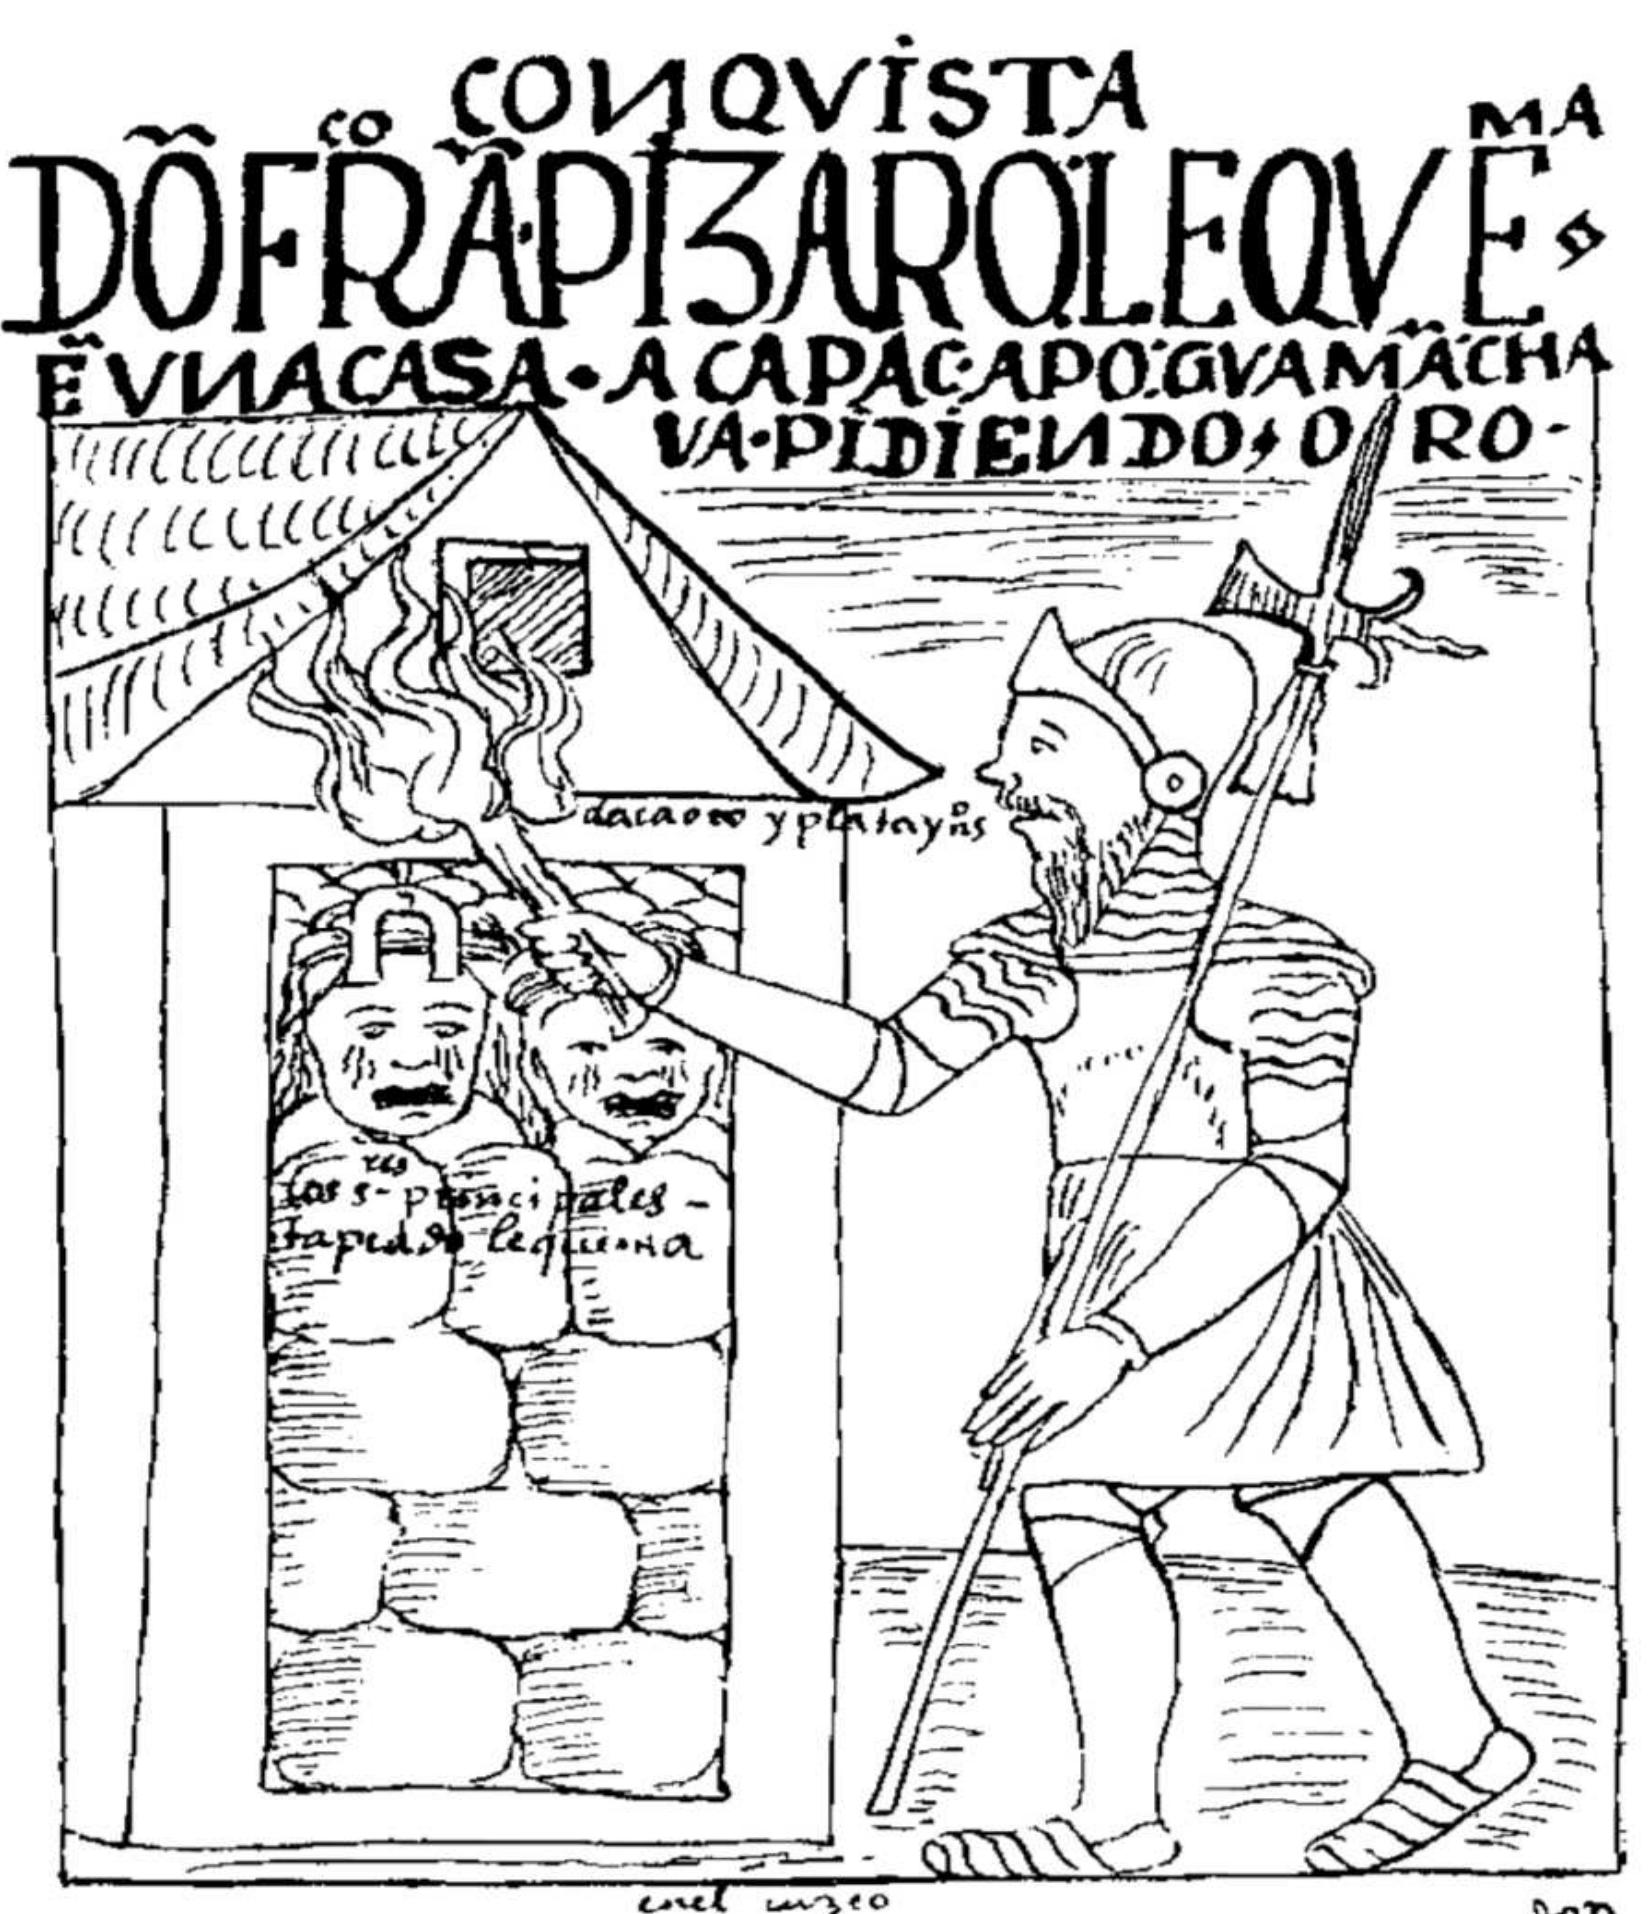 CONQVISTA
DÕ FRÃCO PIZARO LE QVEMA
Ẽ VNA CASA · A CAPAC · APO · GVAMÃCHA
VA · PIDIENDO, ORO -
daca oro y plata yns
los sres principales -
tapeado le quema
en el cuzco